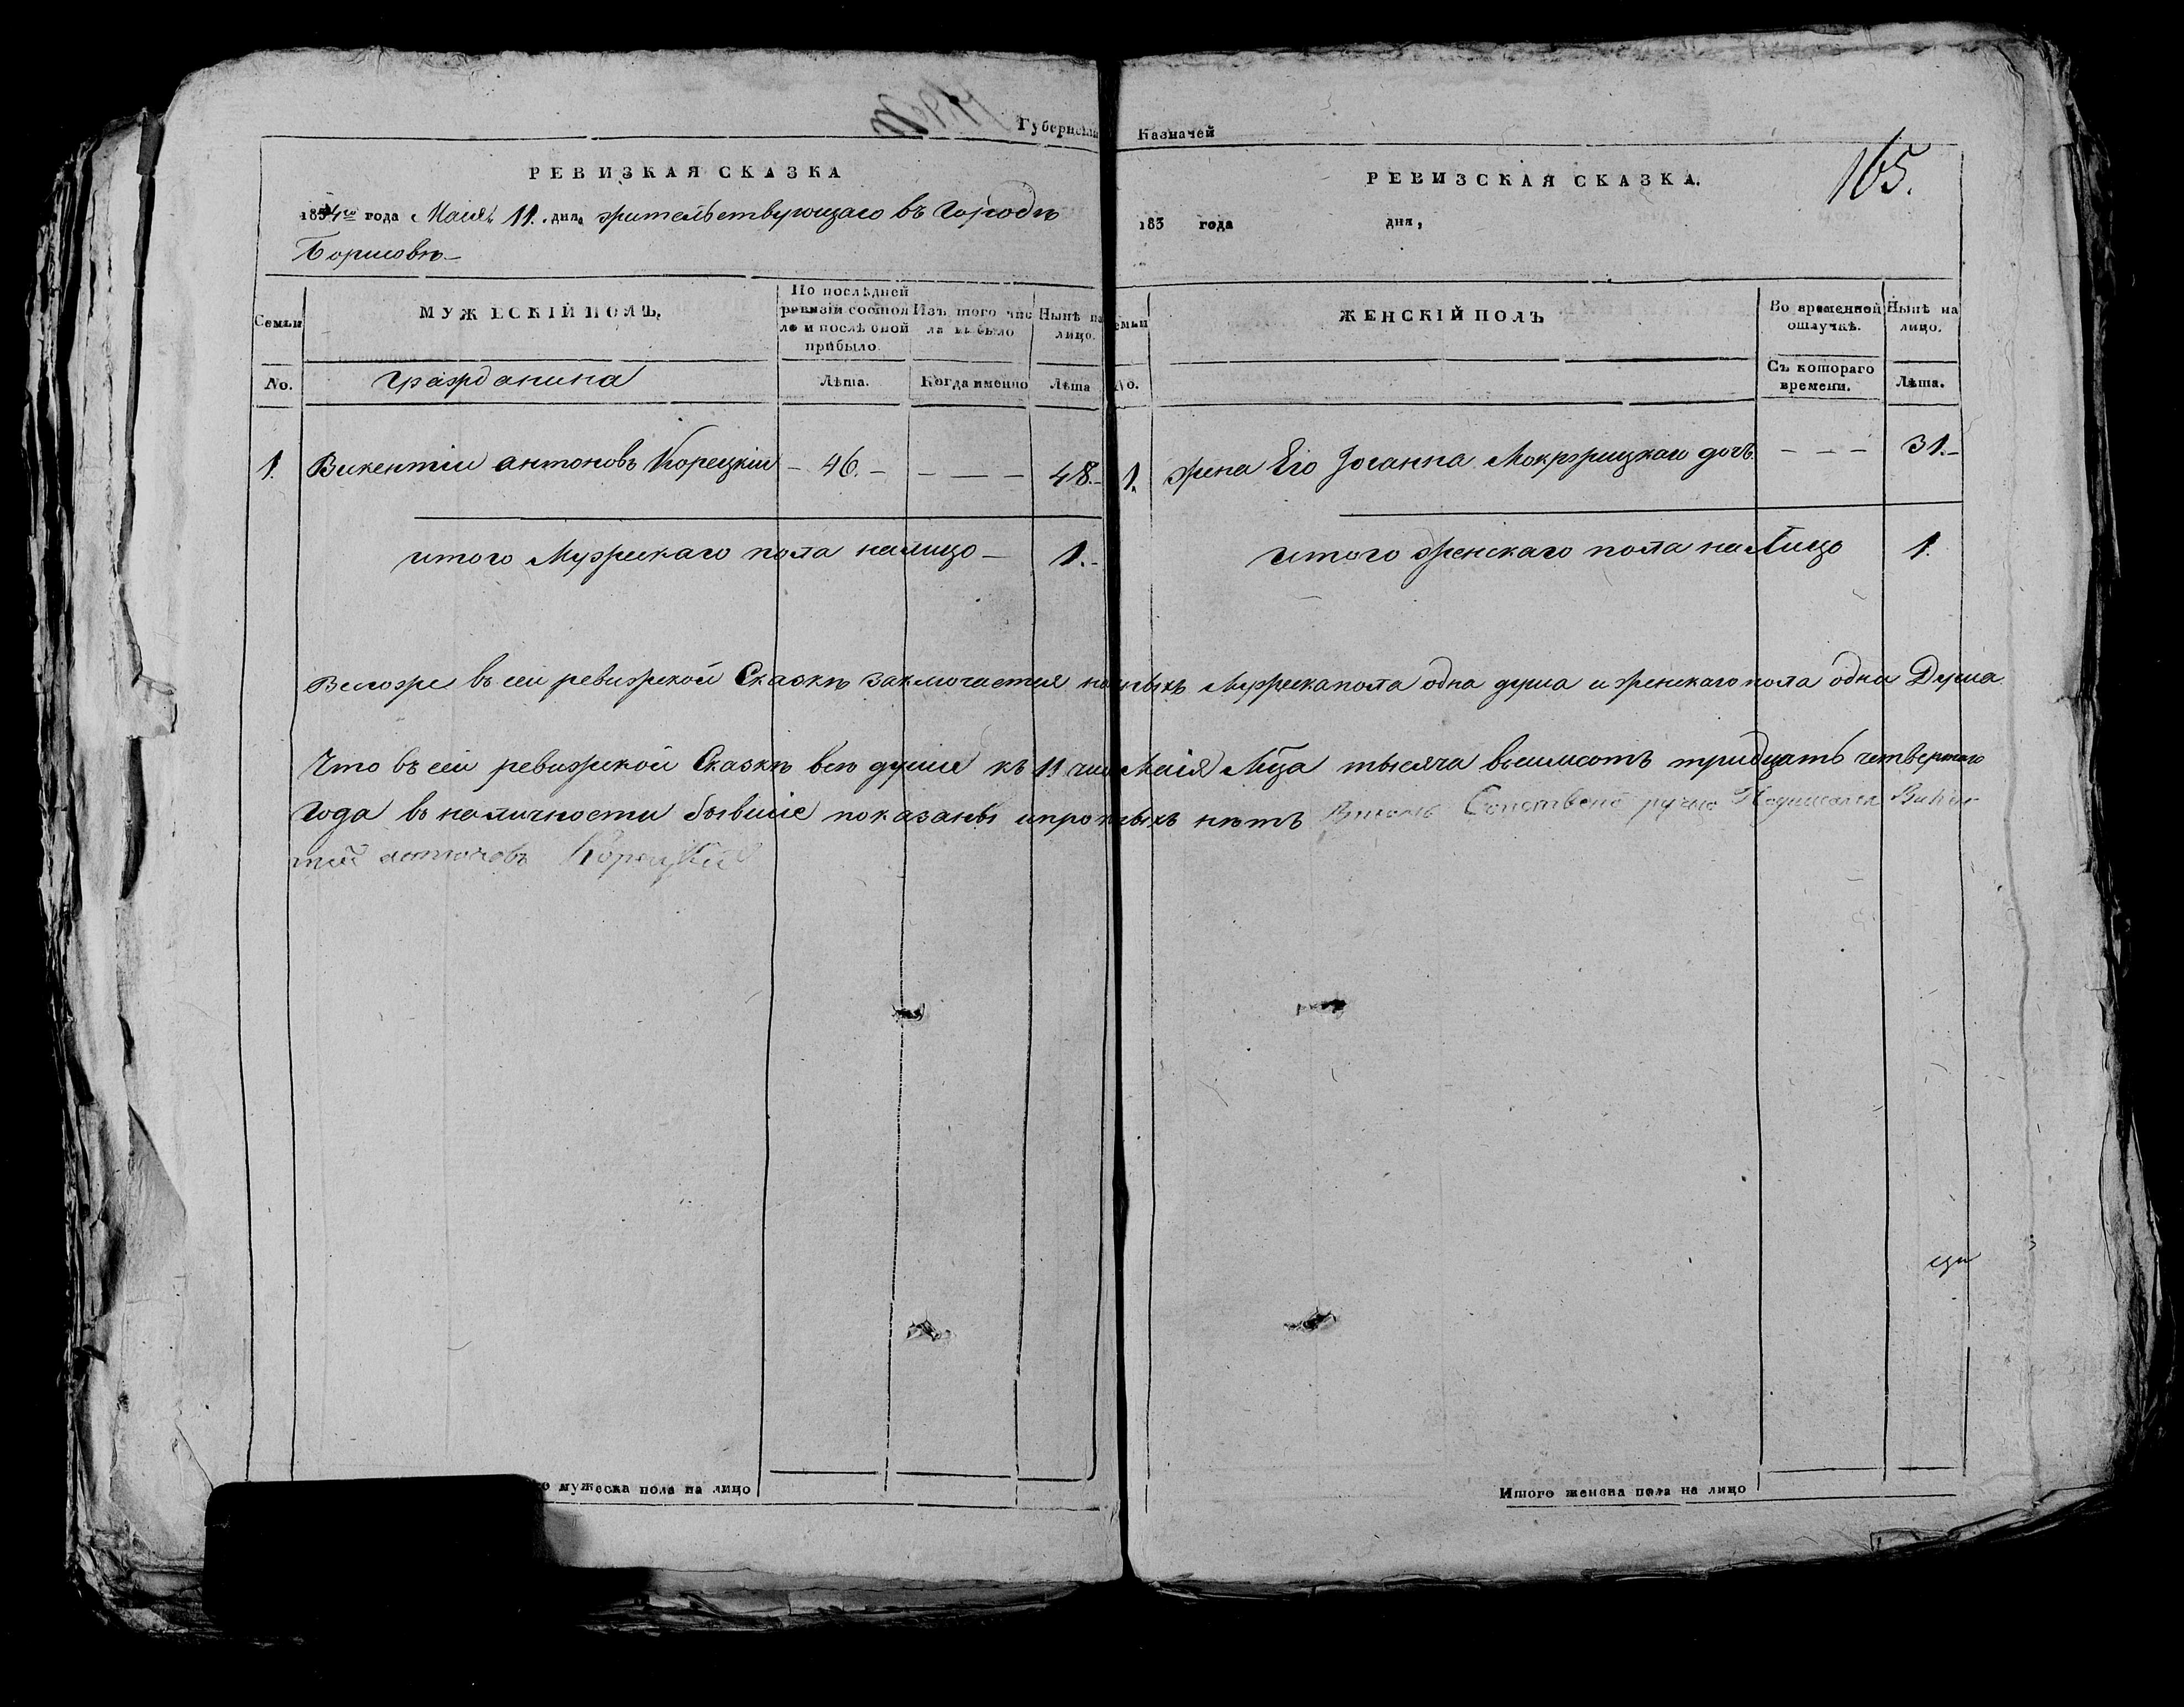 Губернскій Казначей
165.
РЕВИЗКАЯ СКАЗКА
1834го года Маія 11. дня, жительствующаго въ городѣ
Борисовѣ
Семьи
МУЖЕСКІЙ ПОЛЪ.
По послѣдней ревизіи состояло и послѣ оной прибыло.
Изъ того числа выбыло
Нынѣ на лицо.
No.
гражданина
Лѣта.
Когда именно
Лѣта
1. Викентіи антоновъ Корецкіи – 46. – – – – 48.–
итого Мужескаго пола налицо – 1.–
РЕВИЗСКАЯ СКАЗКА.
183 года дня,
Семьи
ЖЕНСКІЙ ПОЛЪ
Во временной отлучкѣ.
Нынѣ на лицо.
No.
Съ котораго времени.
Лѣта.
1. жена Его Іоганна дочь. – – – 31.–
итого женскаго пола налицо 1.
въ сеи ревизской Сказкѣ заключается наличныхъ Мужеска пола одна душа и женскаго пола одна Душа
Что въ сеи ревизской Сказкѣ всѣ души къ 11 числу Маія Мца тысяча восимсотъ тридцать четвертаго
Года въ наличности бывшіе показаны и нѣтъ Въ томъ Подписался Викен
тій антоновъ Корецкій
Итого мужеска пола на лицо
Итого женска пола на лицо